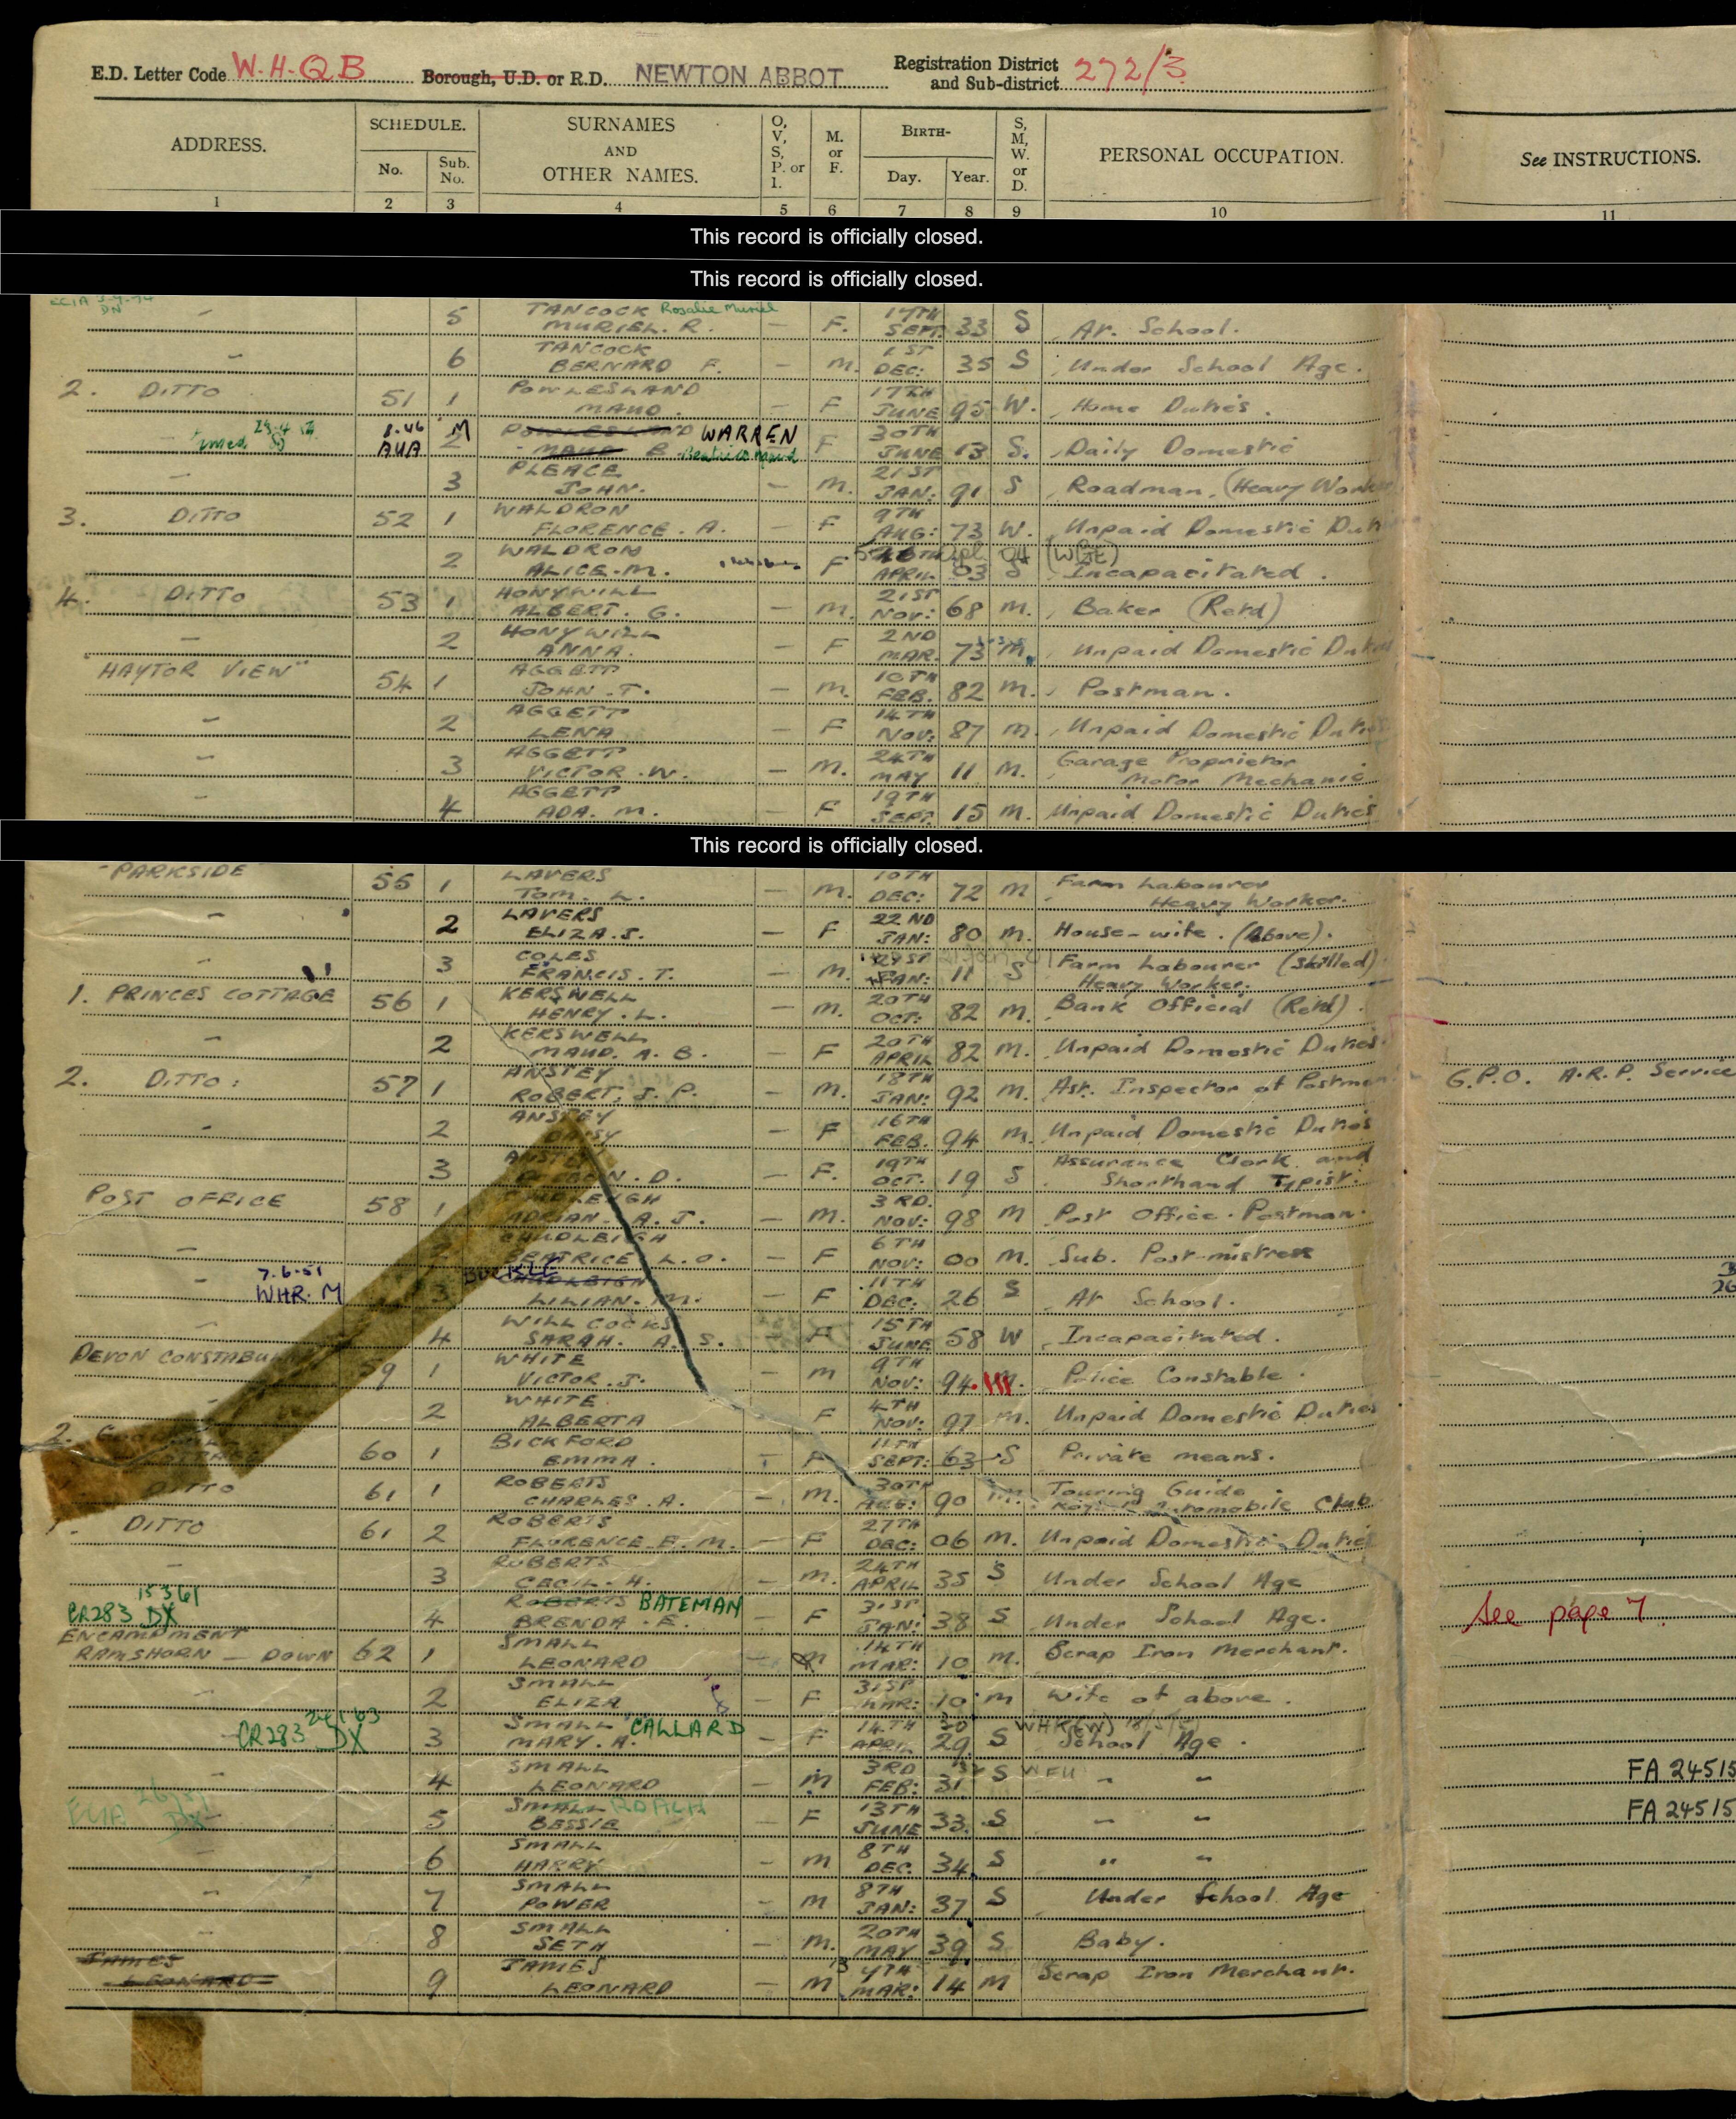 E.D. Letter Code W.H.Q.B Borough, U.D. or R.D. NEWTON ABBOT Registration District and Sub-district 272/3
ADDRESS. SCHEDULE. No. Sub. No. SURNAMES AND OTHER NAMES. O, V, S, P. or I. M. or F. BIRTH- Day. Year. S, M, W. or D. PERSONAL OCCUPATION. See INSTRUCTIONS.
1 2 3 4 5 6 7 8 9 10 11
This record is officially closed.
This record is officially closed.
DN
5 TANCOCK Rosalie Muriel
MURIEL. R. – F. SEPT. 33 S At. School.
6 TANCOCK
BERNARD F. – M. 1ST DEC: 35 S Under School Age.
2. DITTO 51 1 POWLESLAND
MAUD. – F 17TH JUNE 95 W. Home Duties.
8.46 M POWLESLAND WARREN
AUA 2 MAUD B F 30TH JUNE 13 S. Daily Domestic
3 PLEACE
JOHN. – M. 21ST JAN: 91 S Roadman. (Heavy Work
3. DITTO 52 1 WALDRON
FLORENCE. A. – F 9TH AUG: 73 W. Unpaid Domestic Dut
2 WALDRON
ALICE. M. F APRIL 03 S Incapacitated.
4. DITTO 53 1 HONYWILL
ALBERT. G. – M. 21ST NOV: 68 M. Baker (Retd)
2 HONYWILL
ANNA. – F 2ND MAR. 73 M. Unpaid Domestic Duties
"HAYTOR VIEW" 54 1 AGGETT
JOHN. T. – M. 10TH FEB. 82 M. Postman.
2 AGGETT
LENA – F 14TH NOV: 87 M. Unpaid Domestic Duties
3 AGGETT
VICTOR. W. – M. 24TH MAY 11 M. Garage Proprietor Motor Mechanic
4 AGGETT
ADA. M. – F 19TH SEPT. 15 M. Unpaid Domestic Duties
This record is officially closed.
"PARKSIDE 55 1 LAVERS
TOM. L. – M. 10TH DEC: 72 M Farm Labourer Heavy Worker.
2 LAVERS
ELIZA. S. – F 22ND JAN: 80 M. House-wife. (Above).
3 COLES
FRANCIS. T. – M. JAN: 11 S Farm Labourer (Skilled) Heavy Worker.
1. PRINCES COTTAGE 56 1 KERSWELL
HENRY. L. – M. 20TH OCT: 82 M. Bank Official (Retd).
2 KERSWELL
MAUD. A. B. – F 20TH APRIL 82 M. Unpaid Domestic Duties
2. DITTO: 57 1 ANSTEY
ROBERT. J. P. – M. 18TH JAN: 92 M. Ast. Inspector of Postmen G.P.O. A.R.P. Service
2 ANSTEY
DAISY – F 16TH FEB. 94 M. Unpaid Domestic Duties
3 N. D. – F. 19TH OCT. 19 S Assurance Clerk and Shorthand Typist.
POST OFFICE 58 1 CHUDLEIGH
ADRIAN. A. J. – M. 3RD. NOV: 98 M Post Office. Postman.
2 CHUDLEIGH
BEATRICE L. O. – F 6TH NOV: 00 M. Sub. Post-mistress
7.6.51
WHR. M 3 CHUDLEIGH
LILIAN. M. – F 11TH DEC: 26 S At School.
4 WILLCOCKS
SARAH. A. S. – F 15TH JUNE 58 W Incapacitated.
DEVON CONSTABU 59 1 WHITE
VICTOR. J. – M 9TH NOV: 94 M. Police Constable.
2 WHITE
ALBERTA F 4TH NOV: 97 M. Unpaid Domestic Duties
2. 60 1 BICKFORD
EMMA. – F 11TH SEPT: 63 S Private means.
DITTO 61 1 ROBERTS
CHARLES. A. – M. 30TH AUG: 90 M. Touring Guide. Royal Automobile Club
1. DITTO 61 2 ROBERTS
FLORENCE. E. M. – F 27TH DEC: 06 M. Unpaid Domestic Duties
3 ROBERTS
CECIL. H. – M. 24TH APRIL 35 S Under School Age
15 3 61
CR283 DX 4 ROBERTS BATEMAN
BRENDA. E. – F 31ST JAN: 38 S Under School Age. See page 7
ENCAMPMENT
RAMSHORN – DOWN 62 1 SMALL
LEONARD – M 14TH MAR: 10 M. Scrap Iron Merchant.
2 SMALL
ELIZA – F 31ST MAR: 10 M Wife of above.
CR283 DX 3 SMALL CALLARD
MARY. A. – F 14TH APRIL 29 S School Age.
4 SMALL
LEONARD – M 3RD FEB: 31 S WFU " " FA 24515
5 SMALL
BESSIE – F 13TH JUNE 33 S " " FA 24515
6 SMALL
HARRY – M 8TH DEC. 34 S " "
7 SMALL
POWER – M 8TH JAN: 37 S Under School Age
8 SMALL
SETH – M. 20TH MAY 39 S Baby.
JAMES
LEONARD 9 JAMES
LEONARD – M MAR: 14 M Scrap Iron Merchant.